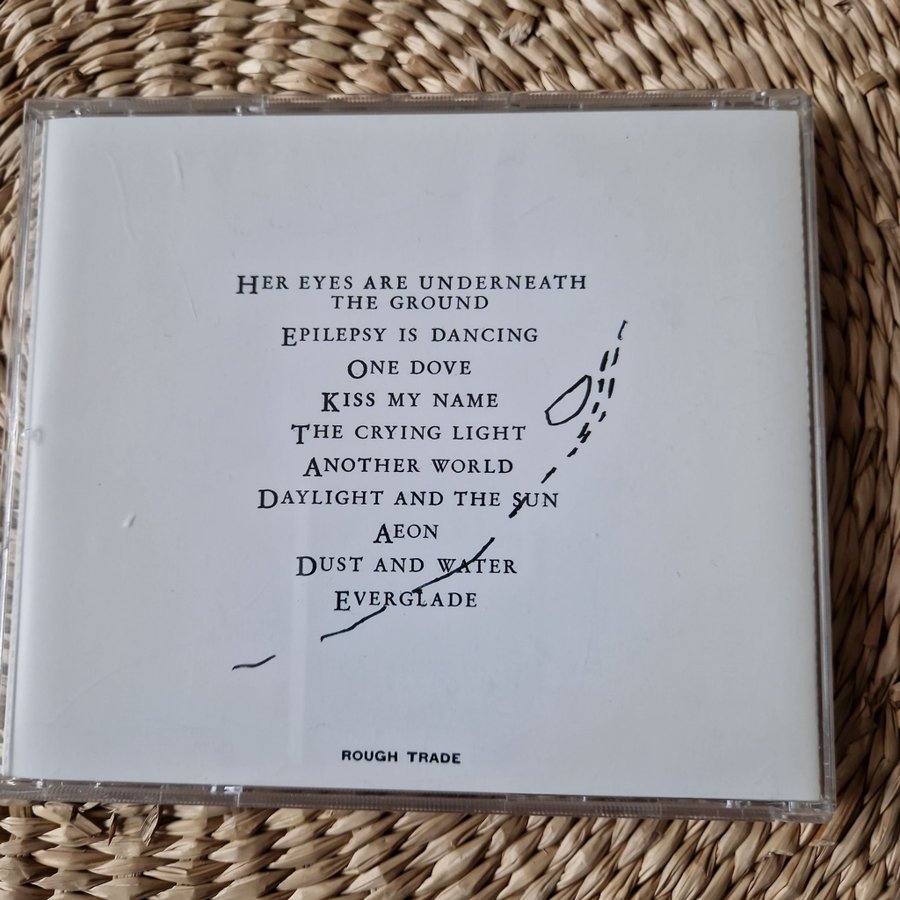 HER EYES ARE UNDERNEATH
THE GROUND
EPILEPSY IS DANCING
ONE DOVE
KISS MY NAME
THE CRYING LIGHT
ANOTHER WORLD
DAYLIGHT AND THE SUN
AEON
DUST AND WATER
EVERGLADE
ROUGH TRADE